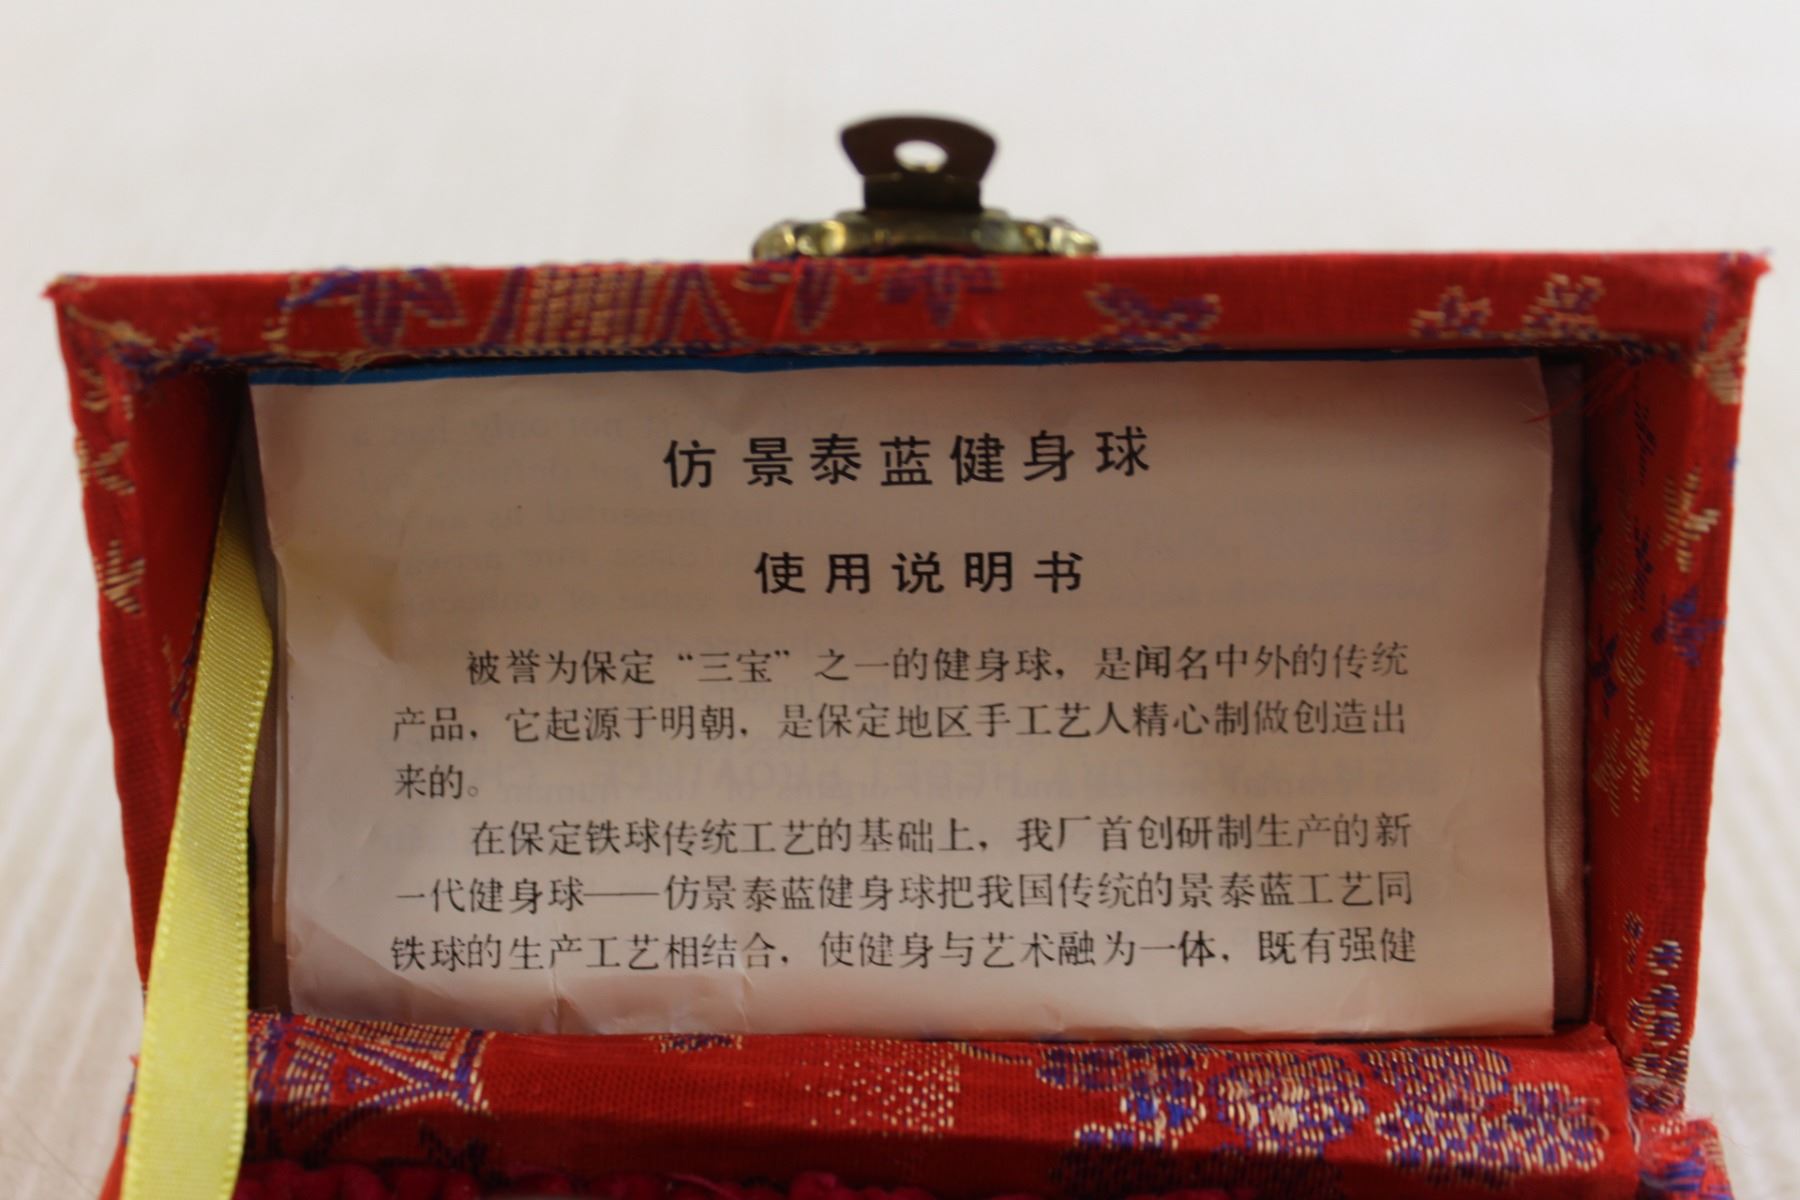 仿景泰蓝健身球
使用说明书
被誉为保定“三宝”之一的健身球，是闻名中外的传统
产品，它起源于明朝，是保定地区手工艺人精心制做创造出
来的。
在保定铁球传统工艺的基础上，我厂首创研制生产的新
一代健身球——仿景泰蓝健身球把我国传统的景泰蓝工艺同
铁球的生产工艺相结合，使健身与艺术融为一体，既有强健